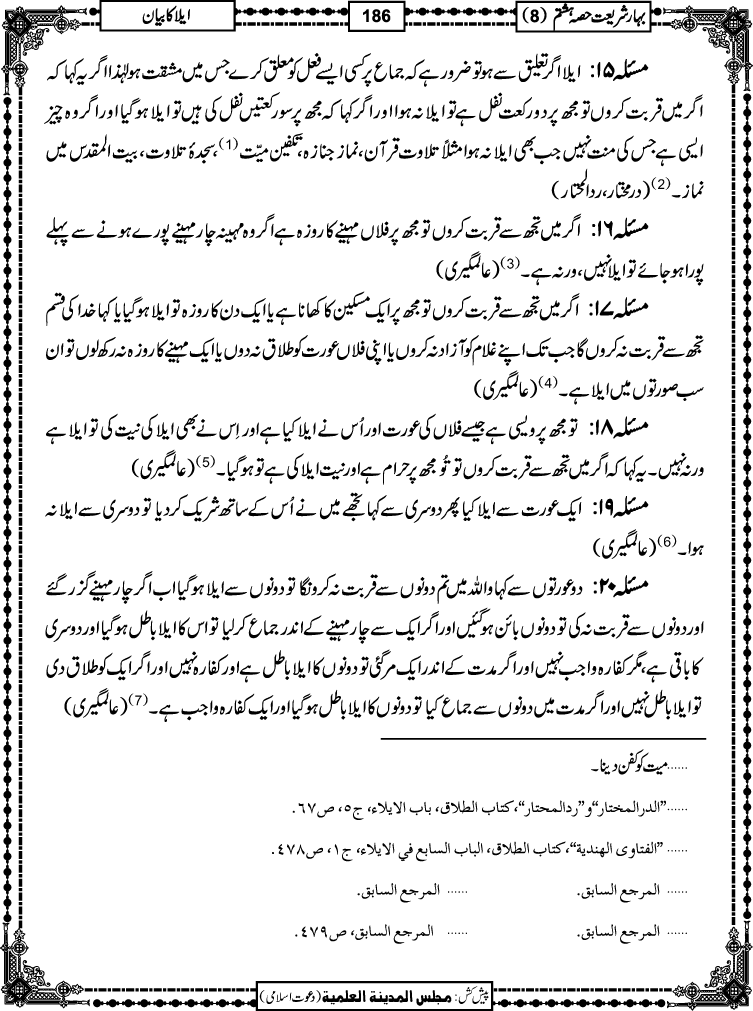 بہارِ شریعت حصہ ہشتم (8)
186
ایلا کا بیان
مسئلہ ۱۵: ایلا اگر تعلیق سے ہو تو ضرور ہے کہ جماع پر کسی ایسے فعل کو معلق کرے جس میں مشقت ہو لہٰذا اگر یہ کہا کہ
اگر میں قربت کروں تو مجھ پر دو رکعت نفل ہے تو ایلا نہ ہوا اور اگر کہا کہ مجھ پر سو رکعتیں نفل کی ہیں تو ایلا ہوگیا اور اگر وہ چیز
ایسی ہے جس کی منت نہیں جب بھی ایلا نہ ہوا مثلاً تلاوت قرآن، نماز جنازہ، تکفین میّت (1)، سجدۂ تلاوت، بیت المقدس میں
نماز۔ (2) (درمختار، ردالمحتار)
مسئلہ ۱۶: اگر میں تجھ سے قربت کروں تو مجھ پر فلاں مہینے کا روزہ ہے اگر وہ مہینہ چار مہینے پورے ہونے سے پہلے
پورا ہو جائے تو ایلا نہیں، ورنہ ہے۔ (3) (عالمگیری)
مسئلہ ۱۷: اگر میں تجھ سے قربت کروں تو مجھ پر ایک مسکین کا کھانا ہے یا ایک دن کا روزہ تو ایلا ہوگیا یا کہا خدا کی قسم
تجھ سے قربت نہ کروں گا جب تک اپنے غلام کو آزاد نہ کروں یا اپنی فلاں عورت کو طلاق نہ دوں یا ایک مہینے کا روزہ نہ رکھ لوں تو ان
سب صورتوں میں ایلا ہے۔ (4) (عالمگیری)
مسئلہ ۱۸: تو مجھ پر ویسی ہے جیسے فلاں کی عورت اور اُس نے ایلا کیا ہے اور اِس نے بھی ایلا کی نیت کی تو ایلا ہے
ورنہ نہیں۔ یہ کہا کہ اگر میں تجھ سے قربت کروں تو تُو مجھ پر حرام ہے اور نیت ایلا کی ہے تو ہوگیا۔ (5) (عالمگیری)
مسئلہ ۱۹: ایک عورت سے ایلا کیا پھر دوسری سے کہا تجھے میں نے اُس کے ساتھ شریک کردیا تو دوسری سے ایلا نہ
ہوا۔ (6) (عالمگیری)
مسئلہ ۲۰: دو عورتوں سے کہا واللہ میں تم دونوں سے قربت نہ کرونگا تو دونوں سے ایلا ہوگیا اب اگر چار مہینے گزر گئے
اور دونوں سے قربت نہ کی تو دونوں بائن ہوگئیں اور اگر ایک سے چار مہینے کے اندر جماع کرلیا تو اس کا ایلا باطل ہوگیا اور دوسری
کا باقی ہے، مگر کفارہ واجب نہیں اور اگر مدت کے اندر ایک مرگئی تو دونوں کا ایلا باطل ہے اور کفارہ نہیں اور اگر ایک کو طلاق دی
تو ایلا باطل نہیں اور اگر مدت میں دونوں سے جماع کیا تو دونوں کا ایلا باطل ہوگیا اور ایک کفارہ واجب ہے۔ (7) (عالمگیری)
......میت کو کفن دینا۔
......”الدرالمختار“و”ردالمحتار“، کتاب الطلاق، باب الایلاء، ج٥، ص٦٧.
...... ”الفتاوی الھندیة“، کتاب الطلاق، الباب السابع في الایلاء، ج١، ص٤٧٨.
...... المرجع السابق. ...... المرجع السابق.
...... المرجع السابق. ...... المرجع السابق، ص٤٧٩.
پیش کش: مجلس المدینة العلمیة (دعوت اسلامی)